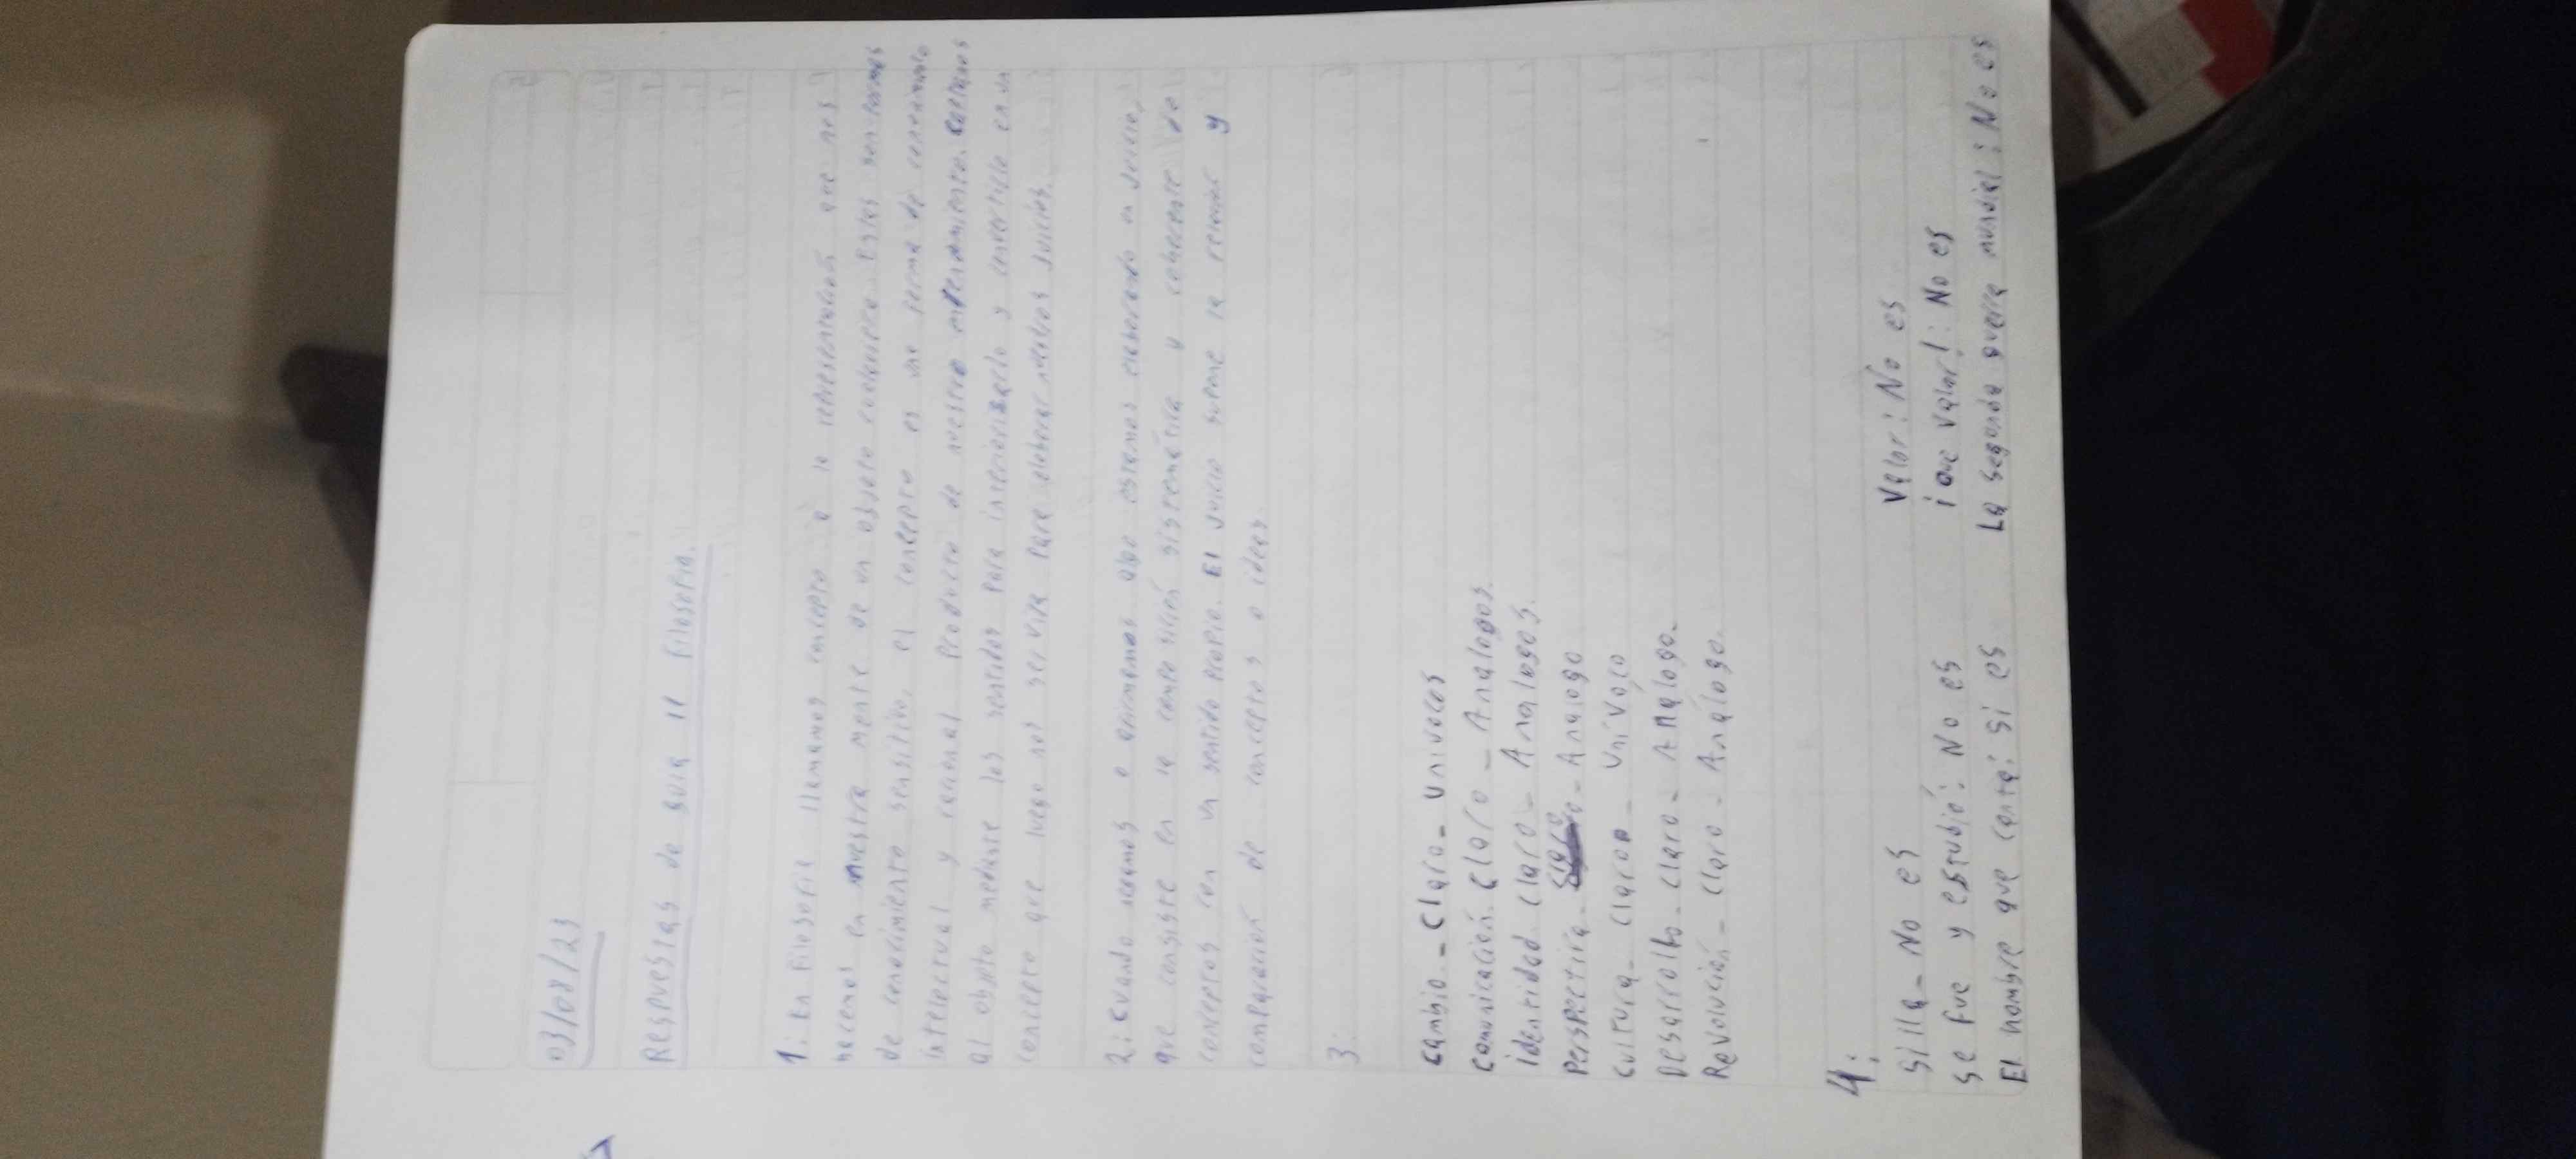 03/08/23
Respuestas de guia 11 filosofia.
1: En filosofia llamamos concepto a la representación que nos
hacemos en nuestra mente de un objeto cualquiera. Estas son formas
de conocimiento sensitivo, el concepto es una forma de conocimiento
intelectual y racional producto de nuestro entendimiento. Captamos
al objeto mediante los sentidos para interiorisarlo y convertirlo en un
concepto que luego nos servira para elaborar nuestros juicios.
2: Cuando negamos o afirmamos algo estamos elaborando un juicio,
que consiste en la composición sistemática y coherente de
conceptos con un sentido propio. El juicio supone la reunión y
comparación de conceptos o ideas.
3:
Cambio - Claro - Univocos
Comunicación. Claro - Analogos.
identidad. Claro - Analogos.
Perspectiva - Analogo
Cultura - Claro - Univoco
Desarrollo - Claro - Análogo.
Revolución - Claro - Análogo.
4:
Silla - No es
Valor: No es
Se fue y estubió: No es
¡Que valor!: No es
El hombre que canta: Si es
La segonda guerra mundial: No es